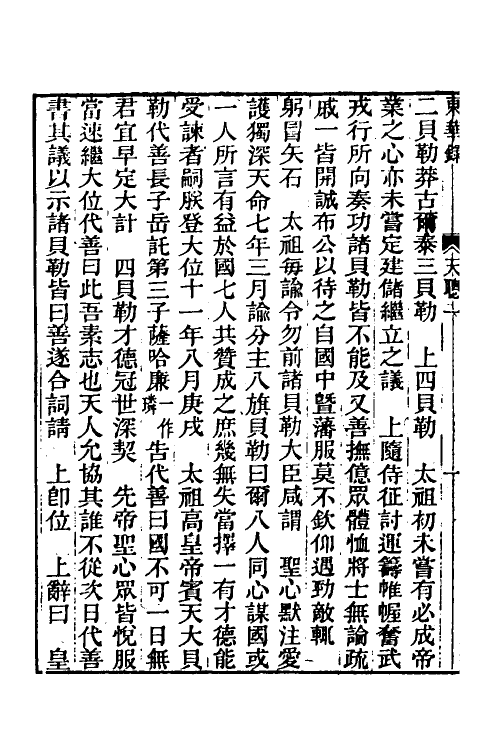 東華錄 天聰一 一
二貝勒莽古爾泰三貝勒　上四貝勒　太祖初未嘗有必成帝
業之心亦未嘗定建儲繼立之議　上隨侍征討運籌帷幄奮武
戎行所向奏功諸貝勒皆不能及又善撫億眾體恤將士無論疏
戚一皆開誠布公以待之自國中暨藩服莫不欽仰遇勁敵輒
躬冒矢石　太祖每諭令勿前諸貝勒大臣咸謂　聖心默注愛
護獨深天命七年三月諭分主八旗貝勒曰爾八人同心謀國或
一人所言有益於國七人共贊成之庶幾無失當擇一有才德能
受諫者嗣朕登大位十一年八月庚戌　太祖高皇帝賓天大貝
勒代善長子岳託第三子薩哈廉一作璘告代善曰國不可一日無
君宜早定大計　四貝勒才德冠世深契　先帝聖心眾皆悅服
當速繼大位代善曰此吾素志也天人允協其誰不從次日代善
書其議以示諸貝勒皆曰善遂合詞請　上卽位　上辭曰　皇